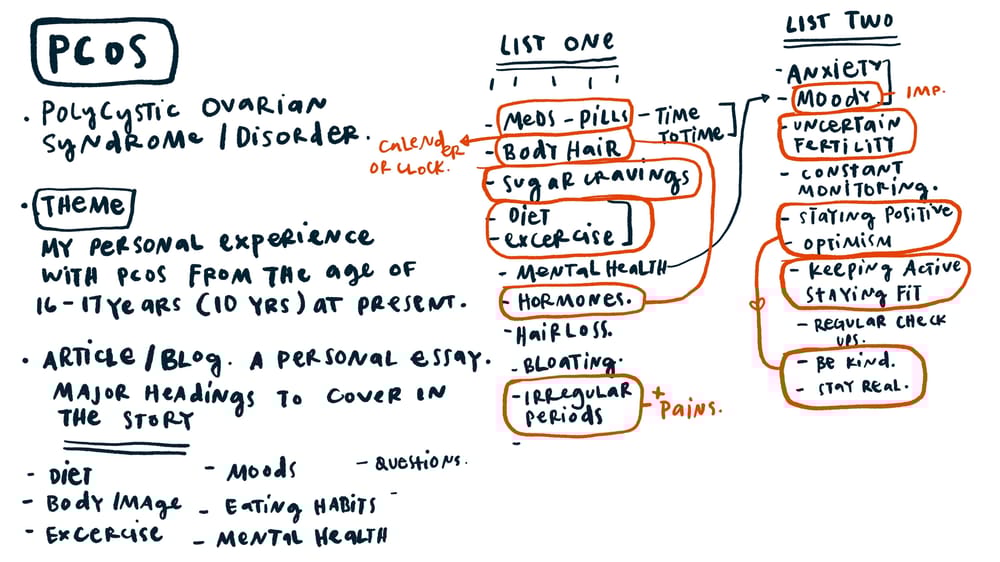 PCOS
. POLYCYSTIC OVARIAN
SYNDROME / DISORDER.
. THEME
MY PERSONAL EXPERIENCE
WITH PCOS FROM THE AGE OF
16-17 YEARS (10 YRS) AT PRESENT.
. ARTICLE / BLOG. A PERSONAL ESSAY.
MAJOR HEADINGS TO COVER IN
THE STORY
- DIET
- BODY IMAGE
- EXCERCISE
- MOODS
- EATING HABITS
- MENTAL HEALTH
- QUESTIONS.
-
LIST ONE
- MEDS - PILLS - TIME
TO TIME
CALENDER
OR CLOCK.
- BODY HAIR
- SUGAR CRAVINGS
- DIET
- EXCERCISE
- MENTAL HEALTH
- HORMONES.
- HAIR LOSS.
- BLOATING.
- IRREGULAR
PERIODS
+
PAINS.
-
LIST TWO
- ANXIETY
- MOODY - IMP.
- UNCERTAIN
FERTILITY
- CONSTANT
MONITORING.
- STAYING POSITIVE
- OPTIMISM
- KEEPING ACTIVE
STAYING FIT
- REGULAR CHECK
UPS.
- BE KIND.
- STAY REAL.